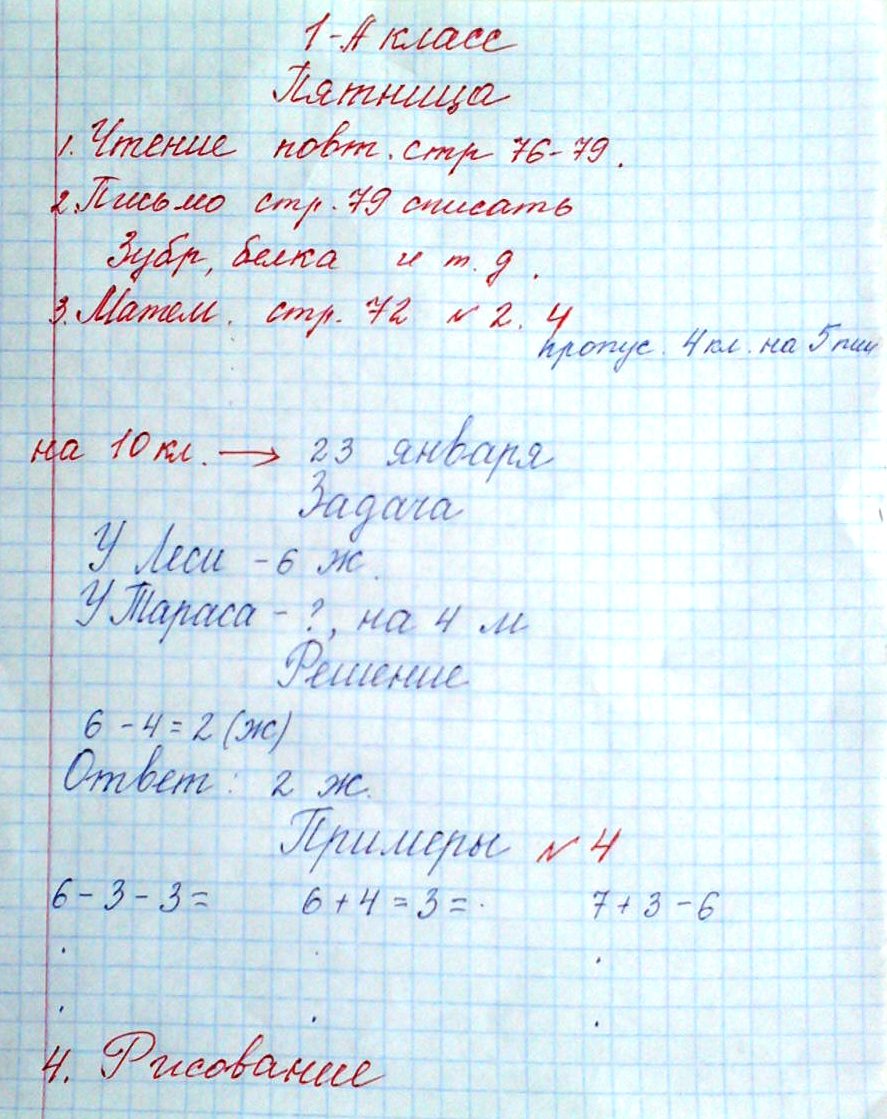 1-А класс
Пятница
1. Чтение повт. стр 76-79.
2. Письмо стр. 79 списать
Зубр, белка и т. д.
3. Матем. стр. 72 № 2. 4
пропус. 4 кл. на 5 пиш
на 10 кл. → 23 января
Задача
У Леси - 6 ж.
У Тараса - ?, на 4 м
Решение
6 - 4 = 2 (ж)
Ответ: 2 ж.
Примеры № 4
6 - 3 - 3 = 6 + 4 = 3 = . 7 + 3 - 6
. . .
. . .
4. Рисование